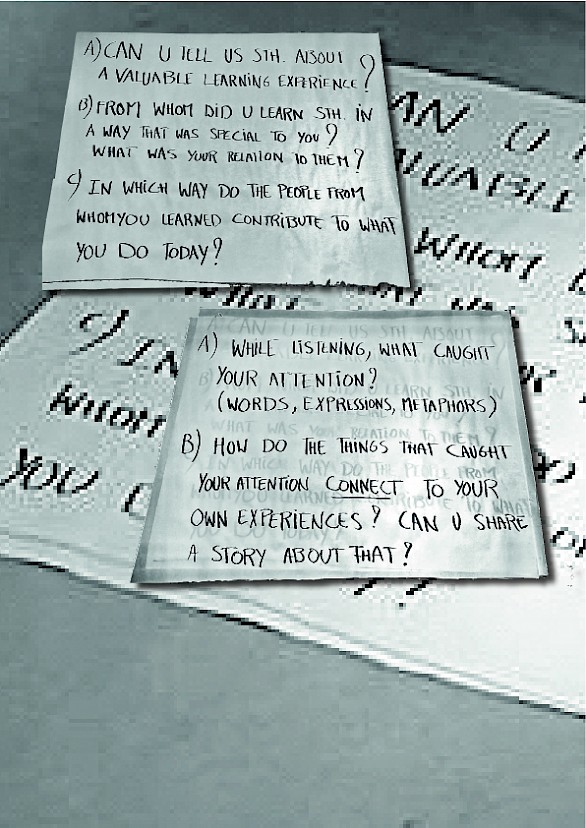 A) CAN U TELL US STH. ABOUT
A VALUABLE LEARNING EXPERIENCE?
B) FROM WHOM DID U LEARN STH. IN
A WAY THAT WAS SPECIAL TO YOU?
WHAT WAS YOUR RELATION TO THEM?
C) IN WHICH WAY DO THE PEOPLE FROM
WHOM YOU LEARNED CONTRIBUTE TO WHAT
YOU DO TODAY?
A) WHILE LISTENING, WHAT CAUGHT
YOUR ATTENTION?
(WORDS, EXPRESSIONS, METAPHORS)
B) HOW DO THE THINGS THAT CAUGHT
YOUR ATTENTION CONNECT TO YOUR
OWN EXPERIENCES? CAN U SHARE
A STORY ABOUT THAT?
AN U
WHOM
C) IN
WHOM
YOU